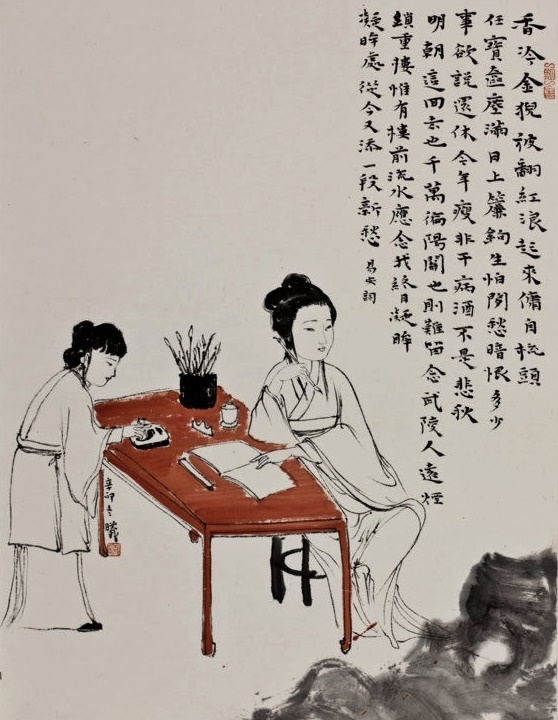 香冷金猊被翻紅浪起來慵自梳頭
任寶奩塵滿日上簾鉤生怕閒愁暗恨多少
事欲說還休今年瘦非干病酒不是悲秋
明朝這回去也千萬徧陽關也則難留念武陵人遠煙
鎖重樓惟有樓前流水應念我終日凝眸
凝眸處從今又添一段新愁
易安詞
辛卯